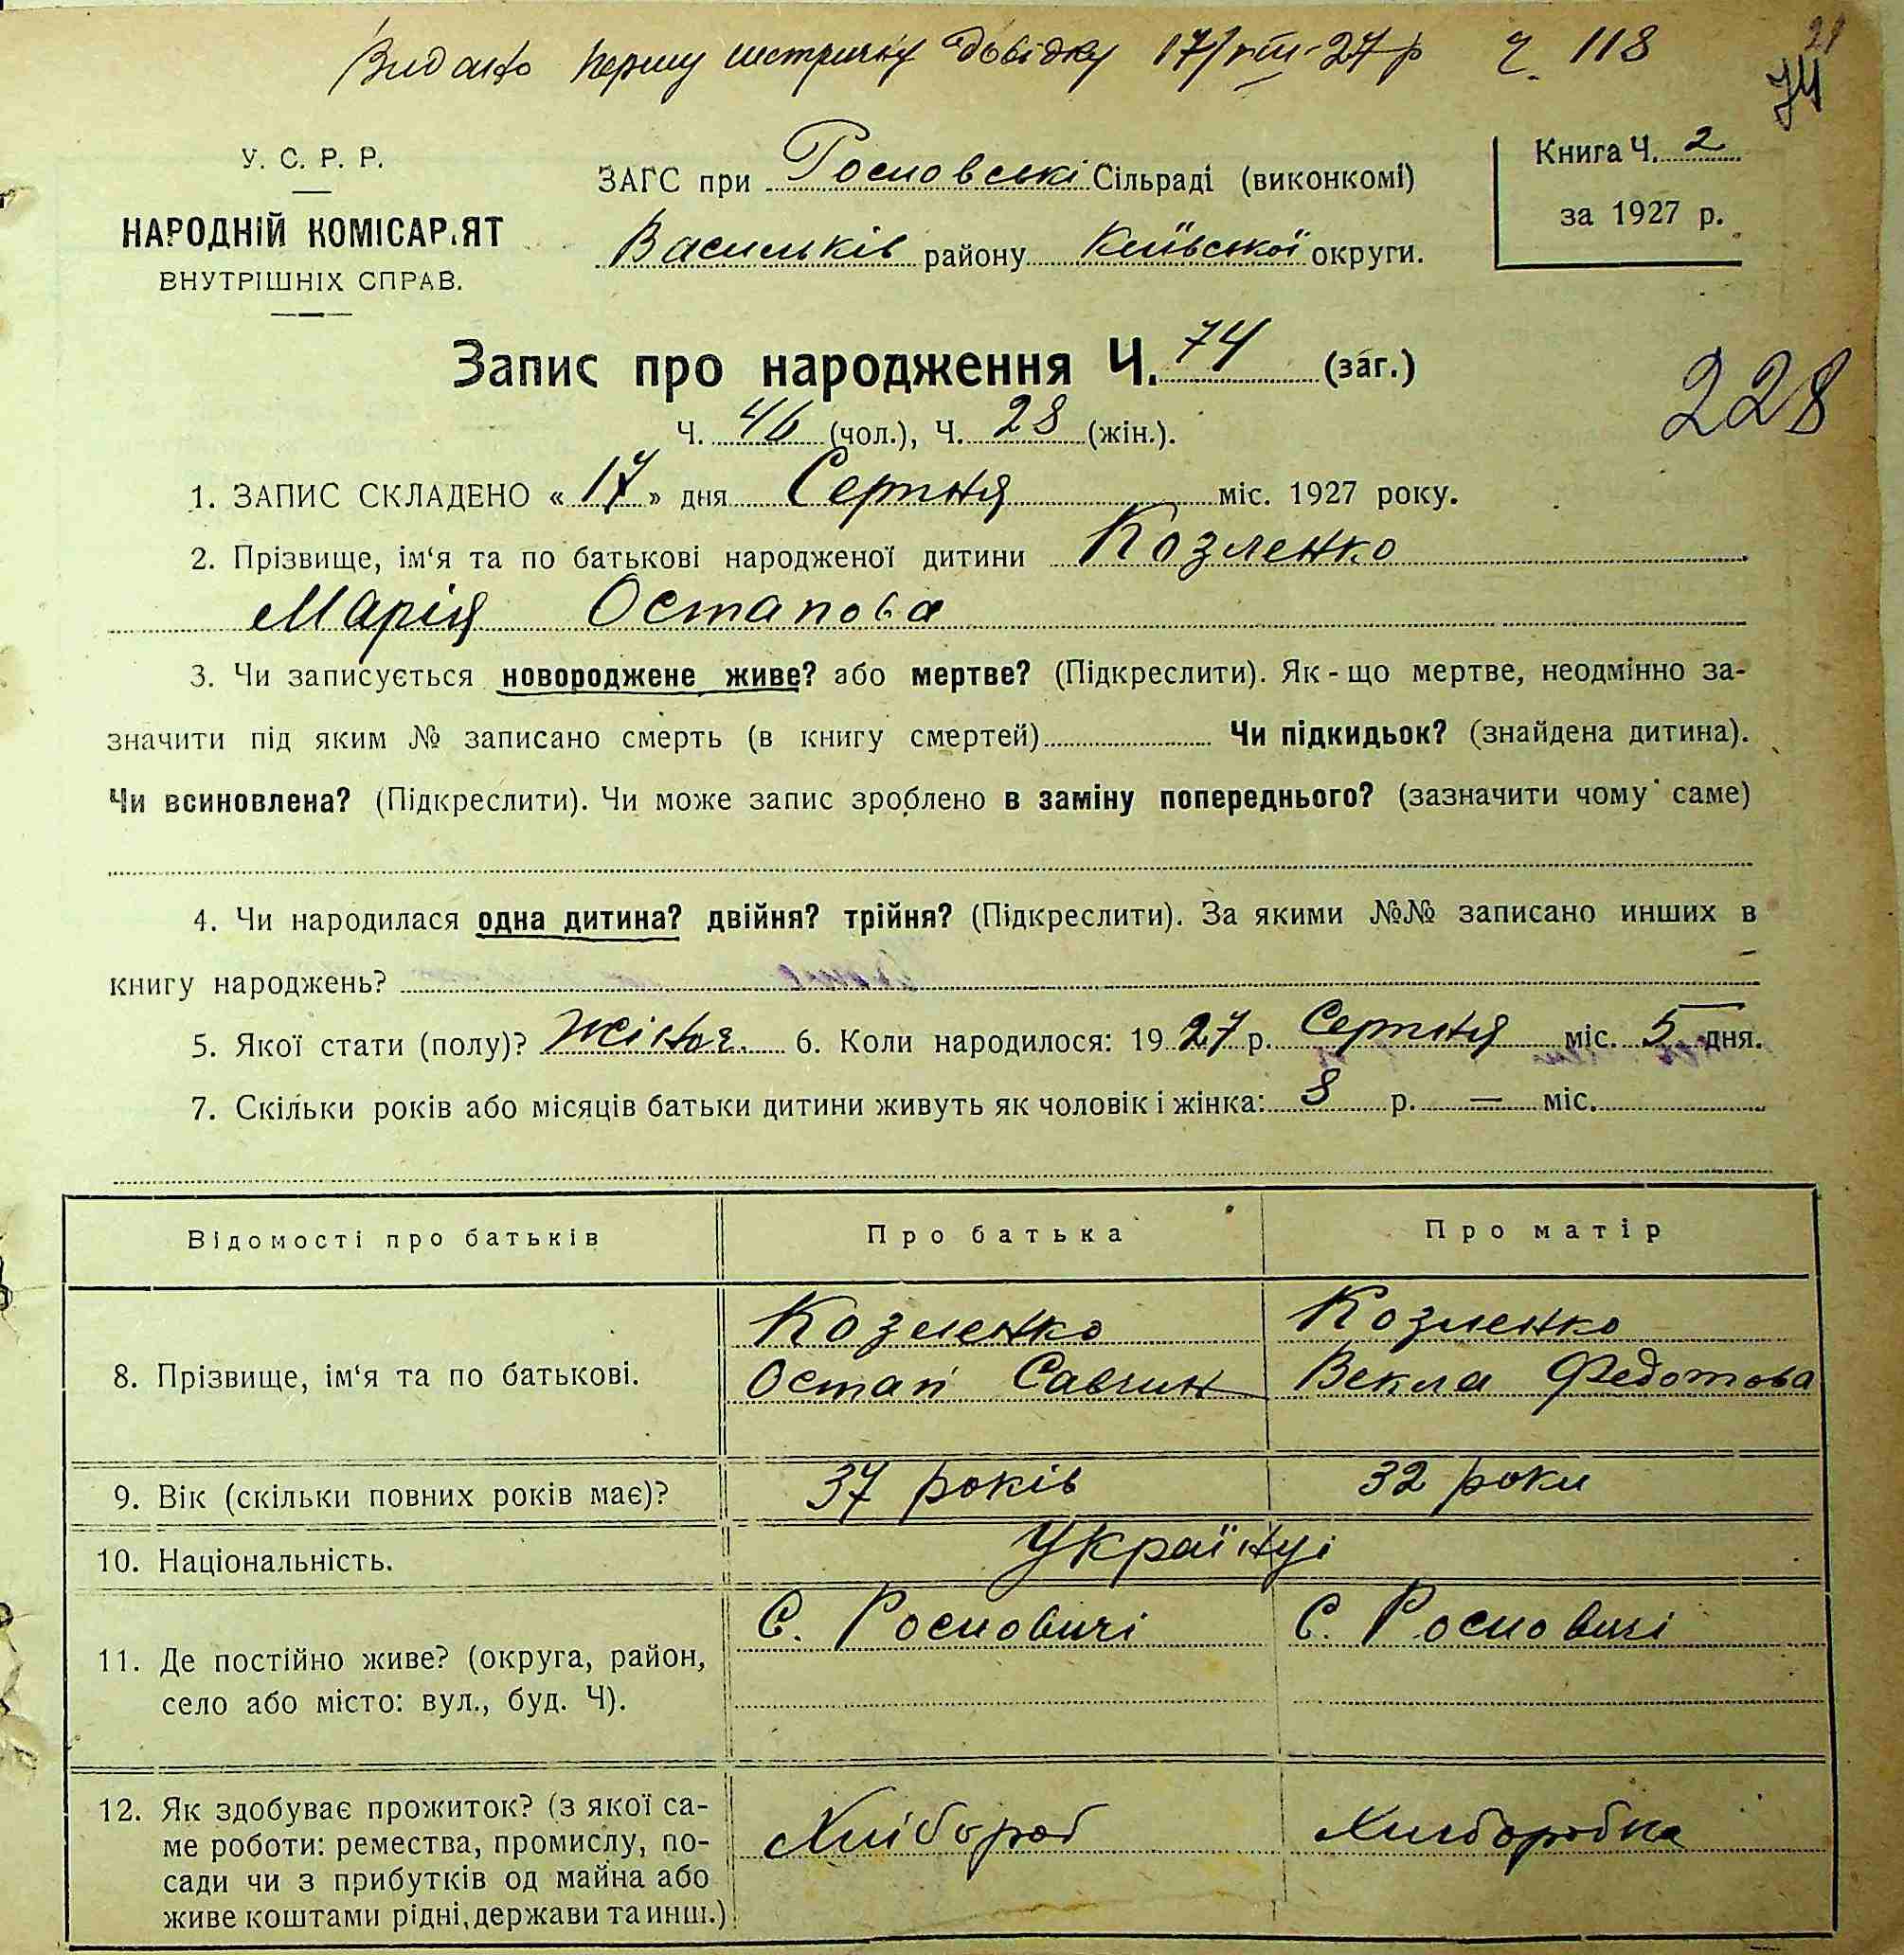 Видано першу метричну довідку 17/VIII-27 р Ч. 118
21
74
У. С. Р. Р.
НАРОДНІЙ КОМІСАР.ЯТ
ВНУТРІШНІХ СПРАВ.
ЗАГС при Росновські Сільраді (виконкомі)
Васильків району Київської округи.
Книга Ч. 2
за 1927 р.
Запис про народження Ч. 74 (заг.)
Ч. 46 (чол.), Ч. 28 (жін.).
228
1. ЗАПИС СКЛАДЕНО « 17 » дня Серпня міс. 1927 року.
2. Прізвище, ім‘я та по батькові народженої дитини Козленко
Марія Остапова
3. Чи записується новороджене живе? або мертве? (Підкреслити). Як - що мертве, неодмінно за-
значити під яким № записано смерть (в книгу смертей) Чи підкидьок? (знайдена дитина).
Чи всиновлена? (Підкреслити). Чи може запис зроблено в заміну попереднього? (зазначити чому саме)
4. Чи народилася одна дитина? двійня? трійня? (Підкреслити). За якими №№ записано инших в
книгу народжень?
5. Якої стати (полу)? Жіноч. 6. Коли народилося: 1927 р. Серпня міс. 5 дня.
7. Скільки років або місяців батьки дитини живуть як чоловік і жінка: 8 р. — міс.
Відомості про батьків Про батька Про матір
8. Прізвище, ім‘я та по батькові.
Козленко Козленко
Остап Савчин Векла Федотова
9. Вік (скільки повних років має)? 37 років 32 роки
10. Національність. Українці
11. Де постійно живе? (округа, район,
село або місто: вул., буд. Ч).
С. Росновичі С. Росновичі
12. Як здобуває прожиток? (з якої са-
ме роботи: ремества, промислу, по-
сади чи з прибутків од майна або
живе коштами рідні, держави та инш.)
Хлібороб Хліборобка